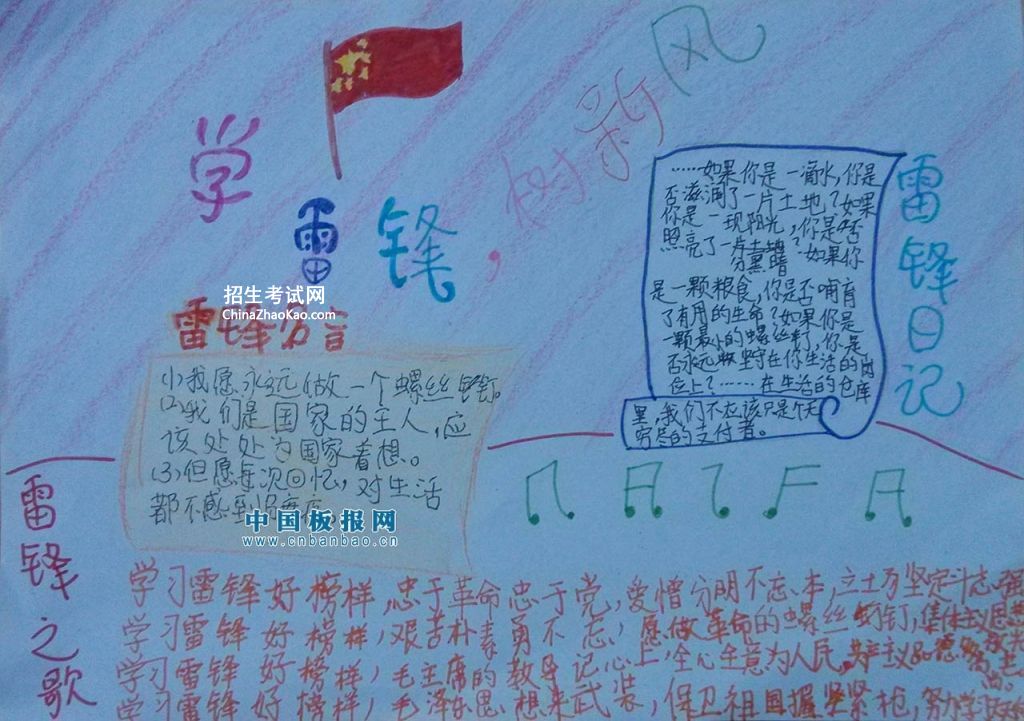 学雷锋，树新风
招生考试网
ChinaZhaoKao.com
雷锋名言
(1)我愿永远做一个螺丝钉。
(2)我们是国家的主人，应
该处处为国家着想。
(3)但愿每次回忆，对生活
都不感到
中国板报网
www.cnbanbao.cn
雷锋日记
……如果你是一滴水，你是
否滋润了一片土地？如果
你是一线阳光，你是否
照亮了一分黑暗？如果你
是一颗粮食，你是否哺育
了有用的生命？如果你是
一颗最小的螺丝钉，你是
否永远坚守在你生活的岗
位上？……在生活的仓库
里，我们不应该只是个无
穷尽的支付者。
雷锋之歌
学习雷锋好榜样，忠于革命忠于党，爱憎分明不忘本，立土方坚定斗志强
学习雷锋好榜样，艰苦朴素勇不忘，愿做革命的螺丝钉，集体主义思想放光
学习雷锋好榜样，毛主席的教导记心上，全心全意为人民，共产主义品德多高尚。
学习雷锋好榜样，毛泽东思想来武装，保卫祖国握紧枪，努力学习